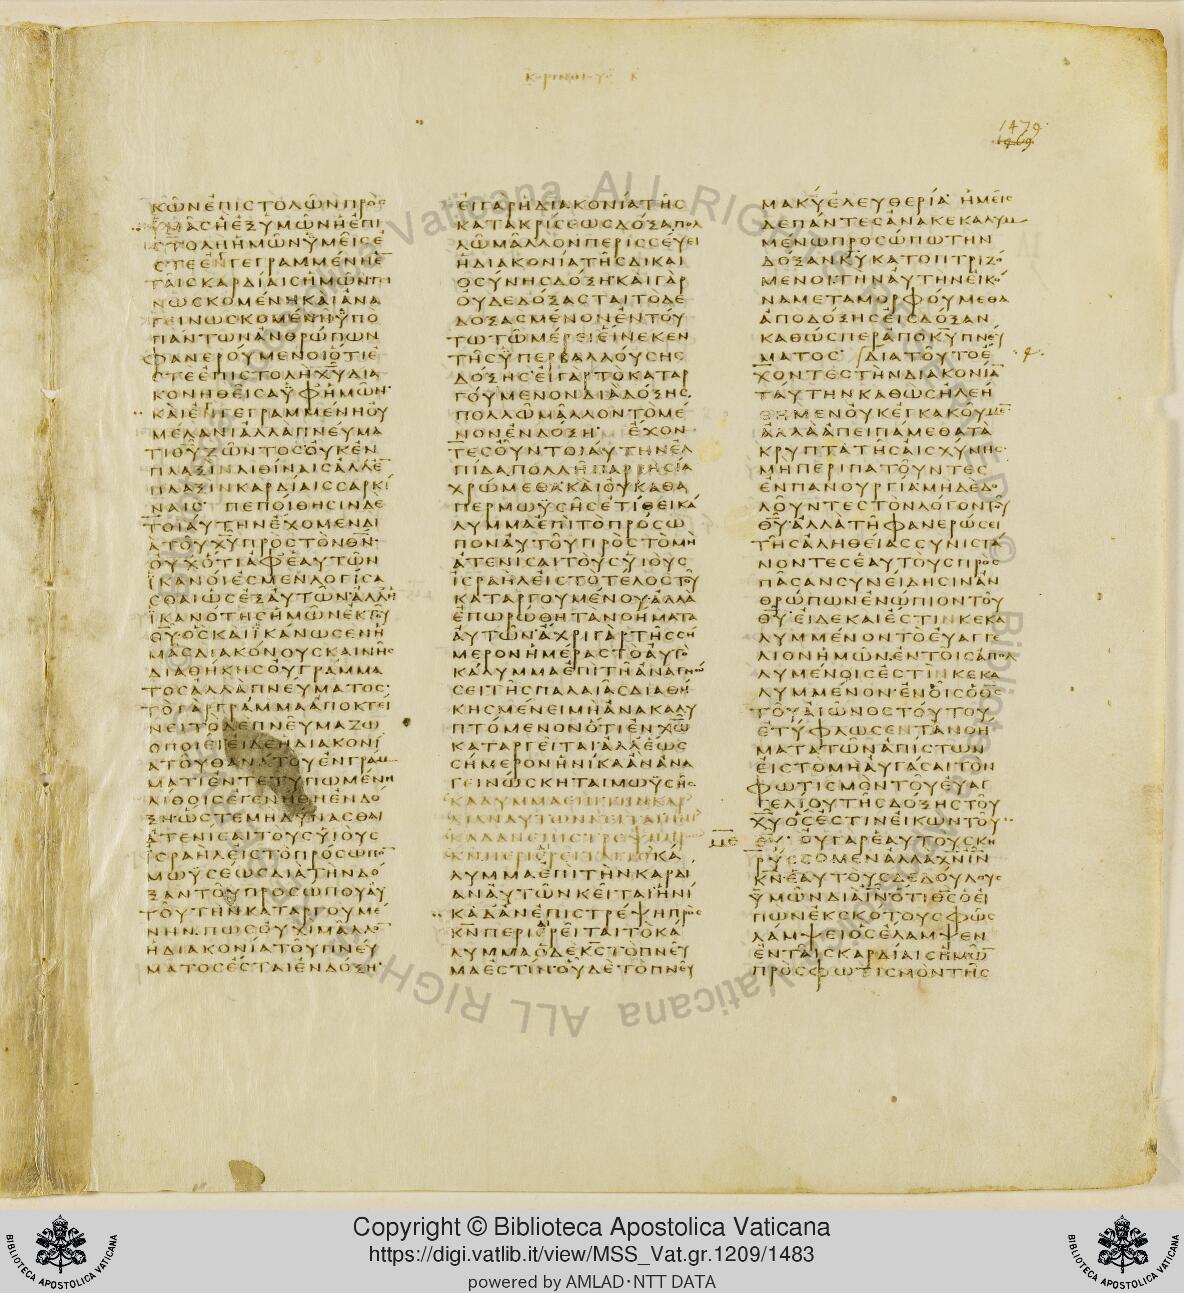 1479
1469
ΚΩΝΕΠΙΣΤΟΛΩΝΠΡΟΣ
ΥΜΑΣΗΕΞΥΜΩΝΗΕΠΙ
ΣΤΟΛΗΗΜΩΝΥΜΕΙΣΕ
ΣΤΕΕΝΓΕΓΡΑΜΜΕΝΗΕ
ΤΑΙΣΚΑΡΔΙΑΙΣΗΜΩΝΓΙ
ΝΩΣΚΟΜΕΝΗΚΑΙΑΝΑ
ΓΕΙΝΩΣΚΟΜΕΝΗΫΠΟ
ΠΑΝΤΩΝΑΝΘΡΩΠΩΝ
ΦΑΝΕΡΟΥΜΕΝΟΙΟΤΙΕ
ΣΤΕΕΠΙΣΤΟΛΗΧΥΔΙΑ
ΚΟΝΗΘΕΙΣΑΫΦΗΜΩΝ
ΚΑΙΕΝΓΕΓΡΑΜΜΕΝΗΟΥ
ΜΕΛΑΝΙΑΛΛΑΠΝΕΥΜΑ
ΤΙΘΥΖΩΝΤΟΣΟΥΚΕΝ
ΠΛΑΞΙΝΛΙΘΙΝΑΙΣΑΛΛΕ
ΠΛΑΞΙΝΚΑΡΔΙΑΙΣΣΑΡΚΙ
ΝΑΙΣ ΠΕΠΟΙΘΗΣΙΝΔΕ
ΤΟΙΑΥΤΗΝΕΧΟΜΕΝΔΙ
ΑΤΟΥΧΥΠΡΟΣΤΟΝΘΝ
ΟΥΧΟΤΙΑΦΕΑΥΤΩΝ
ΪΚΑΝΟΙΕΣΜΕΝΛΟΓΙΣΑ
ΣΘΑΙΩΣΕΞΑΥΤΩΝΑΛΛΗ
ΪΚΑΝΟΤΗΣΗΜΩΝΕΚΤΟΥ
ΘΥΟΣΚΑΙΪΚΑΝΩΣΕΝΗ
ΜΑΣΔΙΑΚΟΝΟΥΣΚΑΙΝΗΣ
ΔΙΑΘΗΚΗΣΟΥΓΡΑΜΜΑ
ΤΟΣΑΛΛΑΠΝΕΥΜΑΤΟΣ
ΤΟΓΑΡΓΡΑΜΜΑΑΠΟΚΤΕΙ
ΝΕΙΤΟΔΕΠΝΕΥΜΑΖΩ
ΟΠΟΙΕΙΕΙΔΕΗΔΙΑΚΟΝΙ
ΑΤΟΥΘΑΝΑΤΟΥΕΝΓΡΑΜ
ΜΑΤΙΕΝΤΕΤΥΠΩΜΕΝΗ
ΛΙΘΟΙΣΕΓΕΝΗΘΗΕΝΔΟ
ΞΗΩΣΤΕΜΗΔΥΝΑΣΘΑΙ
ΑΤΕΝΙΣΑΙΤΟΥΣΥΙΟΥΣ
ΙΣΡΑΗΛΕΙΣΤΟΠΡΟΣΩΠΟ
ΜΩΫΣΕΩΣΔΙΑΤΗΝΔΟ
ΞΑΝΤΟΥΠΡΟΣΩΠΟΥΑΥ
ΤΟΥΤΗΝΚΑΤΑΡΓΟΥΜΕ
ΝΗΝΠΩΣΟΥΧΙΜΑΛΛΟ
ΗΔΙΑΚΟΝΙΑΤΟΥΠΝΕΥ
ΜΑΤΟΣΕΣΤΑΙΕΝΔΟΞΗ
ΕΙΓΑΡΗΔΙΑΚΟΝΙΑΤΗΣ
ΚΑΤΑΚΡΙΣΕΩΣΔΟΞΑΠΟΛ
ΛΩΜΑΛΛΟΝΠΕΡΙΣΣΕΥΕΙ
ΗΔΙΑΚΟΝΙΑΤΗΣΔΙΚΑΙ
ΟΣΥΝΗΣΔΟΞΗΚΑΙΓΑΡ
ΟΥΔΕΔΟΞΑΣΤΑΙΤΟΔΕ
ΔΟΞΑΣΜΕΝΟΝΕΝΤΟΥ
ΤΩΤΩΜΕΡΕΙΕΙΝΕΚΕΝ
ΤΗΣΫΠΕΡΒΑΛΛΟΥΣΗΣ
ΔΟΞΗΣΕΙΓΑΡΤΟΚΑΤΑΡ
ΓΟΥΜΕΝΟΝΔΙΑΔΟΞΗΣ
ΠΟΛΛΩΜΑΛΛΟΝΤΟΜΕ
ΝΟΝΕΝΔΟΞΗ ΕΧΟΝ
ΤΕΣΟΥΝΤΟΙΑΥΤΗΝΕΛ
ΠΙΔΑΠΟΛΛΗΠΑΡΡΗΣΙΑ
ΧΡΩΜΕΘΑΚΑΙΟΥΚΑΘΑ
ΠΕΡΜΩΫΣΗΣΕΤΙΘΕΙΚΑ
ΛΥΜΜΑΕΠΙΤΟΠΡΟΣΩ
ΠΟΝΑΥΤΟΥΠΡΟΣΤΟΜΗ
ΑΤΕΝΙΣΑΙΤΟΥΣΥΙΟΥΣ
ΙΣΡΑΗΛΕΙΣΤΟΤΕΛΟΣΤΟΥ
ΚΑΤΑΡΓΟΥΜΕΝΟΥΑΛΛΑ
ΕΠΩΡΩΘΗΤΑΝΟΗΜΑΤΑ
ΑΥΤΩΝΑΧΡΙΓΑΡΤΗΣΣΗ
ΜΕΡΟΝΗΜΕΡΑΣΤΟΑΥΤΟ
ΚΑΛΥΜΜΑΕΠΙΤΗΑΝΑΓΝΩ
ΣΕΙΤΗΣΠΑΛΑΙΑΣΔΙΑΘΗ
ΚΗΣΜΕΝΕΙΜΗΑΝΑΚΑΛΥ
ΠΤΟΜΕΝΟΝΟΤΙΕΝΧΩ
ΚΑΤΑΡΓΕΙΤΑΙΑΛΛΕΩΣ
ΣΗΜΕΡΟΝΗΝΙΚΑΑΝΑΝΑ
ΓΕΙΝΩΣΚΗΤΑΙΜΩΫΣΗΣ
ΚΑΛΥΜΜΑΕΠΙΤΗΝΚΑΡ
ΔΙΑΝΑΥΤΩΝΚΕΙΤΑΙΗΝΙ
ΚΑΔΑΝΕΠΙΣΤΡΕΨΗΠΡ
ΚΝΠΕΡΙΕΡΕΙΤΑΙΤΟΚΑ
ΛΥΜΜΑΕΠΙΤΗΝΚΑΡΔΙ
ΑΝΑΥΤΩΝΚΕΙΤΑΙΗΝΙ
ΚΑΔΑΝΕΠΙΣΤΡΕΨΗΠΡΟΣ
ΚΝΠΕΡΙΕΡΕΙΤΑΙΤΟΚΑ
ΛΥΜΜΑΟΔΕΚΣΤΟΠΝΕΥ
ΜΑΕΣΤΙΝΟΥΔΕΤΟΠΝΕΥ
ΜΑΚΥΕΛΕΥΘΕΡΙΑ ΗΜΕΙΣ
ΔΕΠΑΝΤΕΣΑΝΑΚΕΚΑΛΥΜ
ΜΕΝΩΠΡΟΣΩΠΩΤΗΝ
ΔΟΞΑΝΚΥΚΑΤΟΠΤΡΙΖΟ
ΜΕΝΟΙΤΗΝΑΥΤΗΝΕΙΚΟ
ΝΑΜΕΤΑΜΟΡΦΟΥΜΕΘΑ
ΑΠΟΔΟΞΗΣΕΙΣΔΟΞΑΝ
ΚΑΘΩΣΠΕΡΑΠΟΚΥΠΝΕΥ
ΜΑΤΟΣ ΔΙΑΤΟΥΤΟΕ
ΧΟΝΤΕΣΤΗΝΔΙΑΚΟΝΙΑ
ΤΑΥΤΗΝΚΑΘΩΣΗΛΕΗ
ΘΗΜΕΝΟΥΚΕΓΚΑΚΟΥΜΕ
ΑΛΛΑΑΠΕΙΠΑΜΕΘΑΤΑ
ΚΡΥΠΤΑΤΗΣΑΙΣΧΥΝΗΣ
ΜΗΠΕΡΙΠΑΤΟΥΝΤΕΣ
ΕΝΠΑΝΟΥΡΓΙΑΜΗΔΕΔΟ
ΛΟΥΝΤΕΣΤΟΝΛΟΓΟΝΤΟΥ
ΘΥΑΛΛΑΤΗΦΑΝΕΡΩΣΕΙ
ΤΗΣΑΛΗΘΕΙΑΣΣΥΝΙΣΤΑ
ΝΟΝΤΕΣΕΑΥΤΟΥΣΠΡΟΣ
ΠΑΣΑΝΣΥΝΕΙΔΗΣΙΝΑΝ
ΘΡΩΠΩΝΕΝΩΠΙΟΝΤΟΥ
ΘΥΕΙΔΕΚΑΙΕΣΤΙΝΚΕΚΑ
ΛΥΜΜΕΝΟΝΤΟΕΥΑΓΓΕ
ΛΙΟΝΗΜΩΝΕΝΤΟΙΣΑΠΟΛ
ΛΥΜΕΝΟΙΣΕΣΤΙΝΚΕΚΑ
ΛΥΜΜΕΝΟΝΕΝΟΙΣΟΘΣ
ΤΟΥΑΙΩΝΟΣΤΟΥΤΟΥ
ΕΤΥΦΛΩΣΕΝΤΑΝΟΗ
ΜΑΤΑΤΩΝΑΠΙΣΤΩΝ
ΕΙΣΤΟΜΗΑΥΓΑΣΑΙΤΟΝ
ΦΩΤΙΣΜΟΝΤΟΥΕΥΑΓ
ΓΕΛΙΟΥΤΗΣΔΟΞΗΣΤΟΥ
ΧΥΟΣΕΣΤΙΝΕΙΚΩΝΤΟΥ
ΘΥ ΟΥΓΑΡΕΑΥΤΟΥΣΚΗ
ΡΥΣΣΟΜΕΝΑΛΛΑΧΝΙΝ
ΚΝΕΑΥΤΟΥΣΔΕΔΟΥΛΟΥΣ
ΫΜΩΝΔΙΑΙΝΟΤΙΘΣΟΕΙ
ΠΩΝΕΚΣΚΟΤΟΥΣΦΩΣ
ΛΑΜΨΕΙΟΣΕΛΑΜΨΕΝ
ΕΝΤΑΙΣΚΑΡΔΙΑΙΣΗΜΩ
ΠΡΟΣΦΩΤΙΣΜΟΝΤΗΣ
Copyright © Biblioteca Apostolica Vaticana
https://digi.vatlib.it/view/MSS_Vat.gr.1209/1483
powered by AMLAD·NTT DATA
BIBLIOTECA APOSTOLICA VATICANA
BIBLIOTECA APOSTOLICA VATICANA